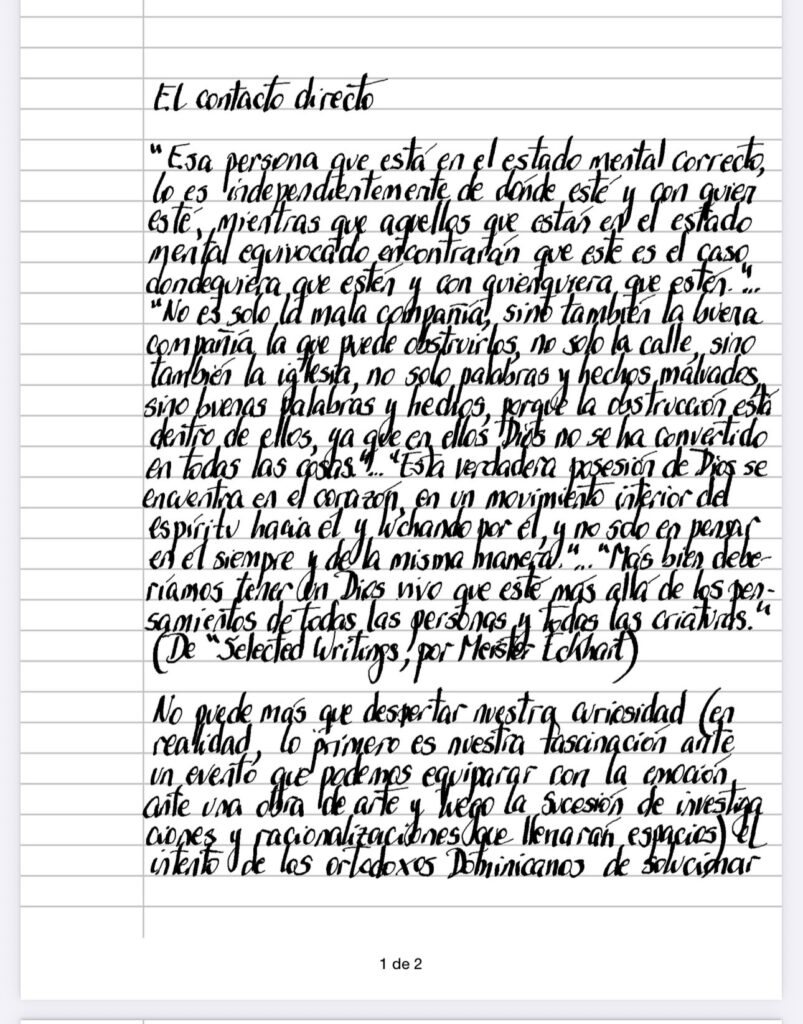 El contacto directo
"Esa persona que está en el estado mental correcto,
lo es independientemente de donde esté y con quien
esté, mientras que aquellos que están en el estado
mental equivocado encontrarán que este es el caso
dondequiera que estén y con quienquiera que estén."...
"No es solo la mala compañía, sino también la buena
compañía la que puede obstruirlos, no solo la calle, sino
también la iglesia, no solo palabras y hechos malvados,
sino buenas palabras y hechos, porque la obstrucción está
dentro de ellos, ya que en ellos Dios no se ha convertido
en todas las cosas."..."Esta verdadera posesión de Dios se
encuentra en el corazón, en un movimiento interior del
espíritu hacia él y luchando por él, y no solo en pensar
en el siempre y de la misma manera."..."Más bien debe-
ríamos tener un Dios vivo que esté más allá de los pen-
samientos de todas las personas y todas las criaturas."
(De "Selected Writings, por Meister Eckhart)
No puede más que despertar nuestra curiosidad (en
realidad, lo primero es nuestra fascinación ante
un evento que podemos equiparar con la emoción
ante una obra de arte y luego la sucesión de investiga
ciones y racionalizaciones que llenarán espacios) el
intento de los ortodoxos Dominicanos de solucionar
1 de 2